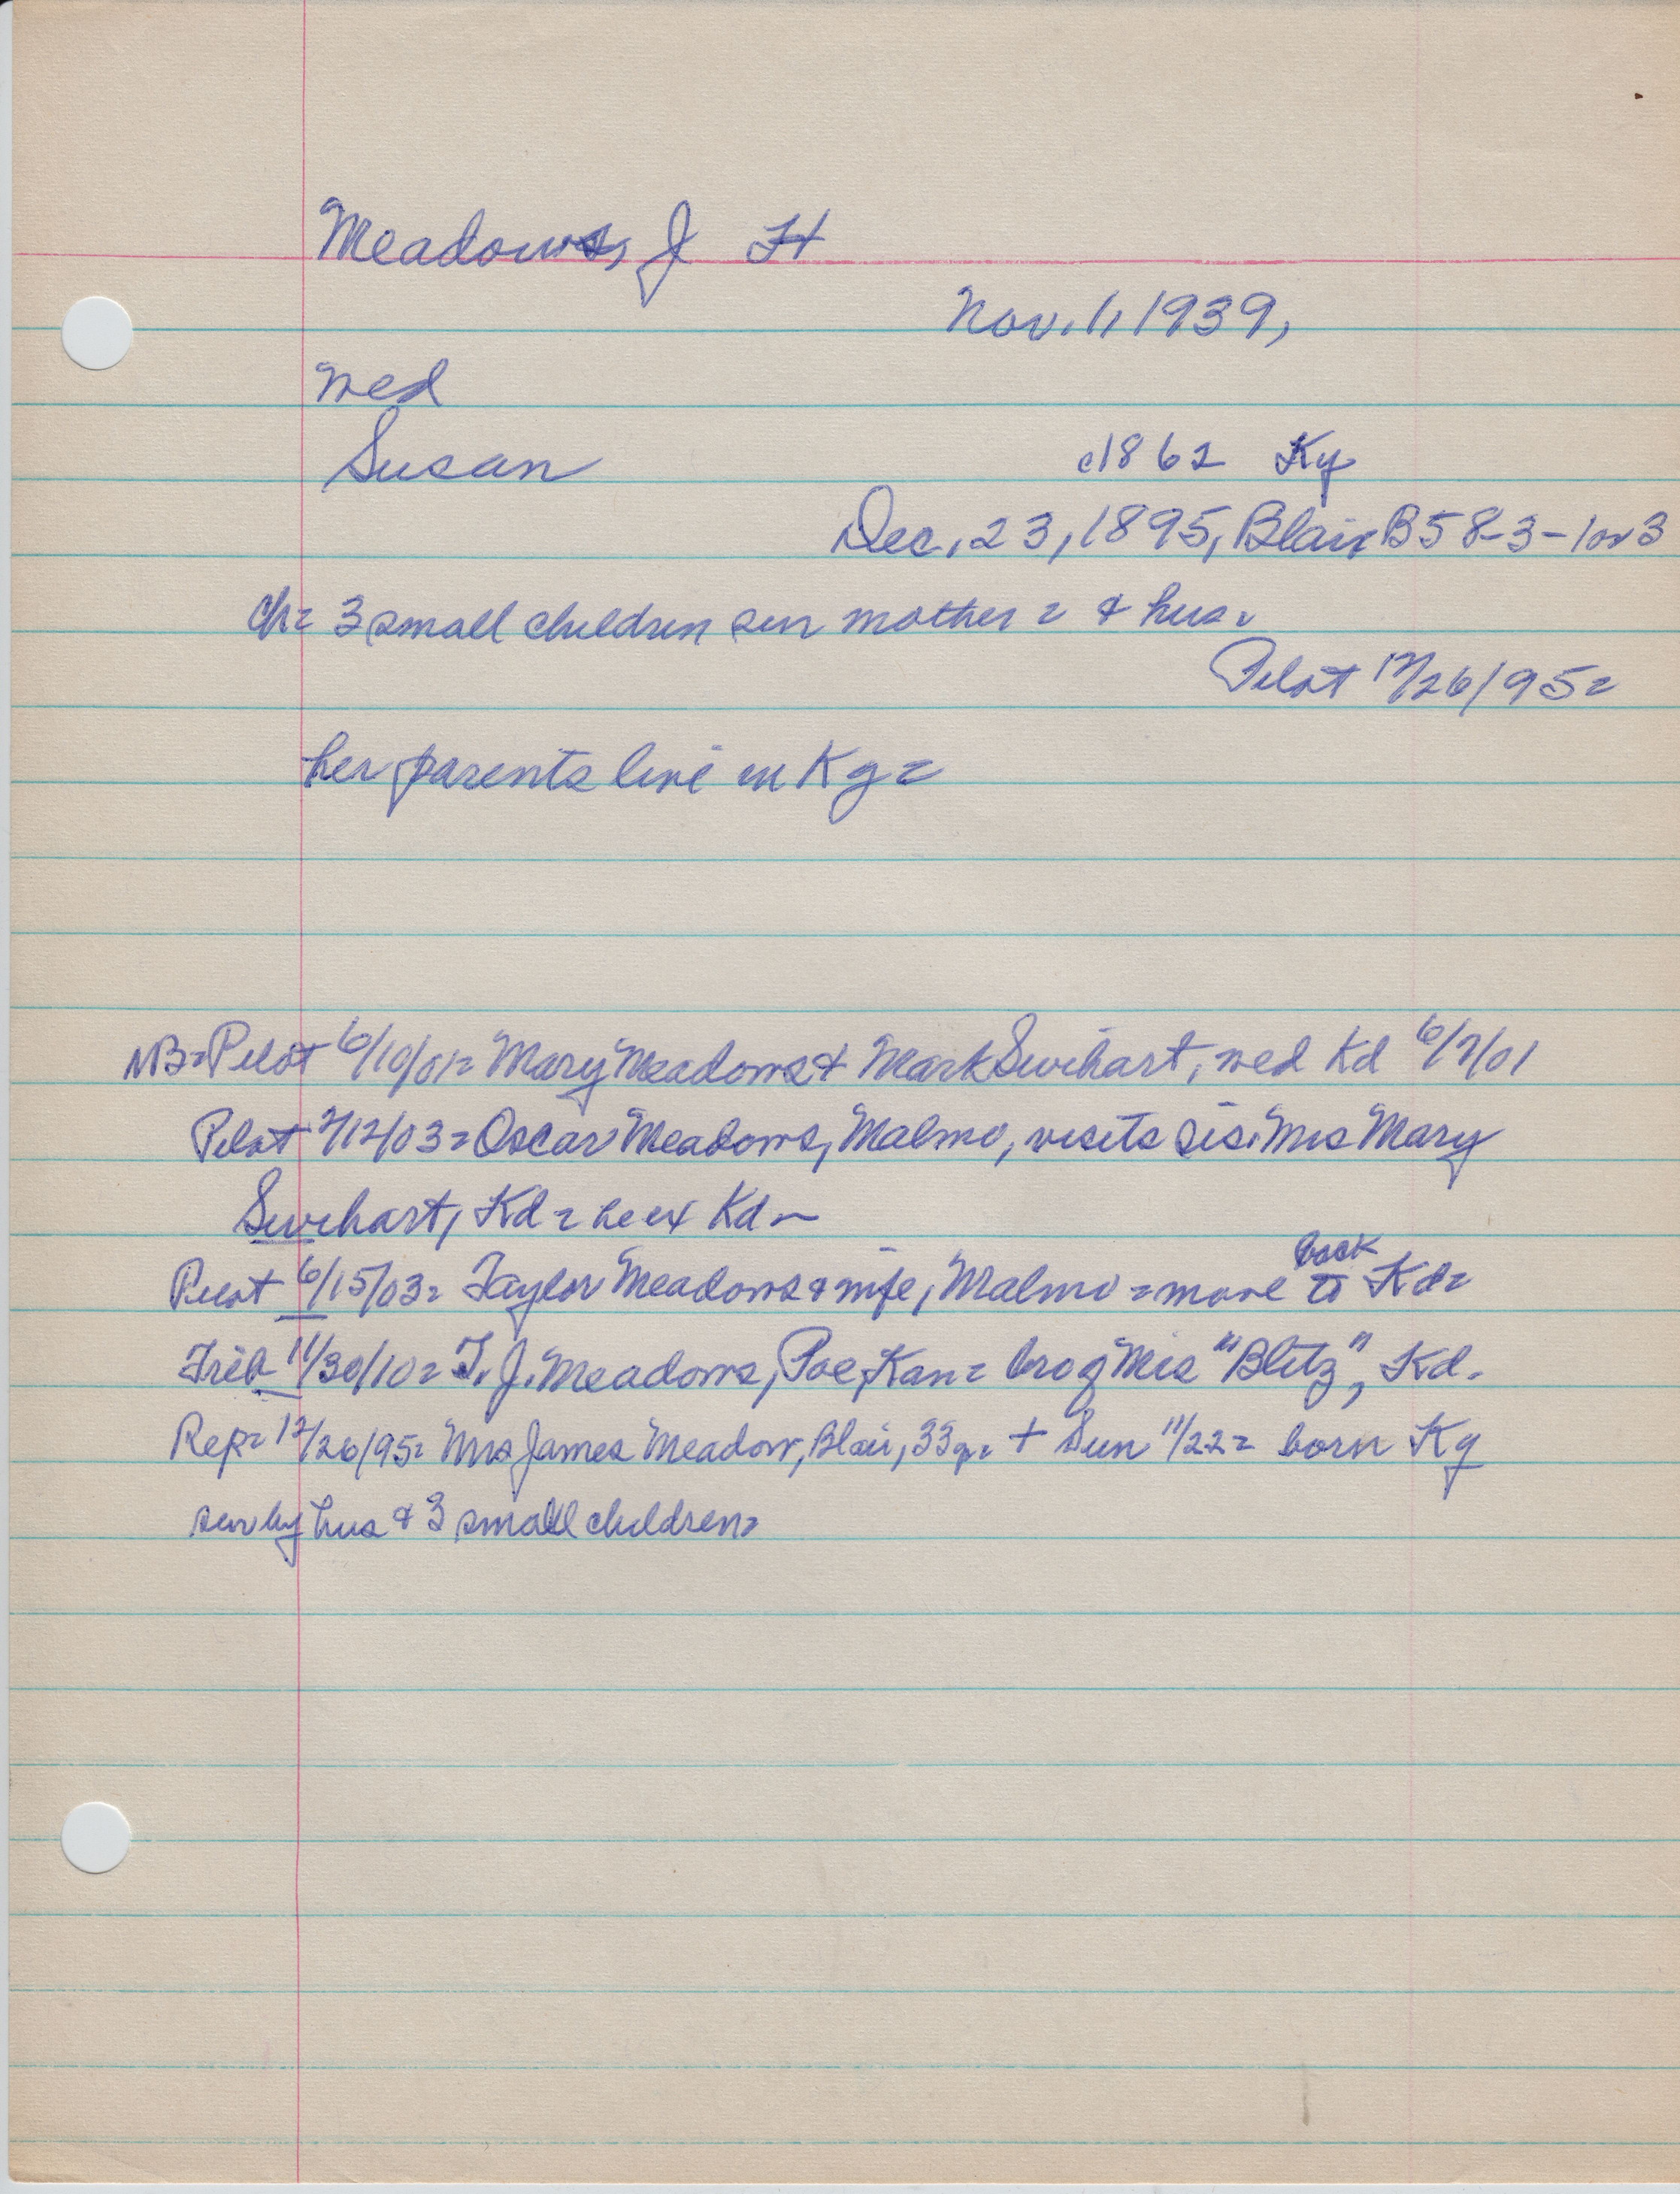 Meadows, J H
Nov. 1, 1939,
wed
Susan
c1862 Ky
Dec. 23, 1895, Blair B58-3-1or3
ch= 3 small children sur mother = & hus.
Pilot 12/26/95=
her parents live in Ky=
NB=Pilot 6/10/01= Mary Meadows & Mark Swihart, wed Kd 6/7/01
Pilot 2/12/03= Oscar Meadows, Malmo, visits sis. Mrs Mary
Swihart, Kd = he ex Kd -
Pilot 6/15/03= Taylor Meadows & wife, Malmo = move back to Kd=
Trib 11/30/10= T. J. Meadows, Poe, Kan = bro of Mrs "Blitz", Kd.
Rep= 12/26/95= Mrs James Meadow, Blair, 33y. + Sun 11/22= born Ky
sur by hus & 3 small children=